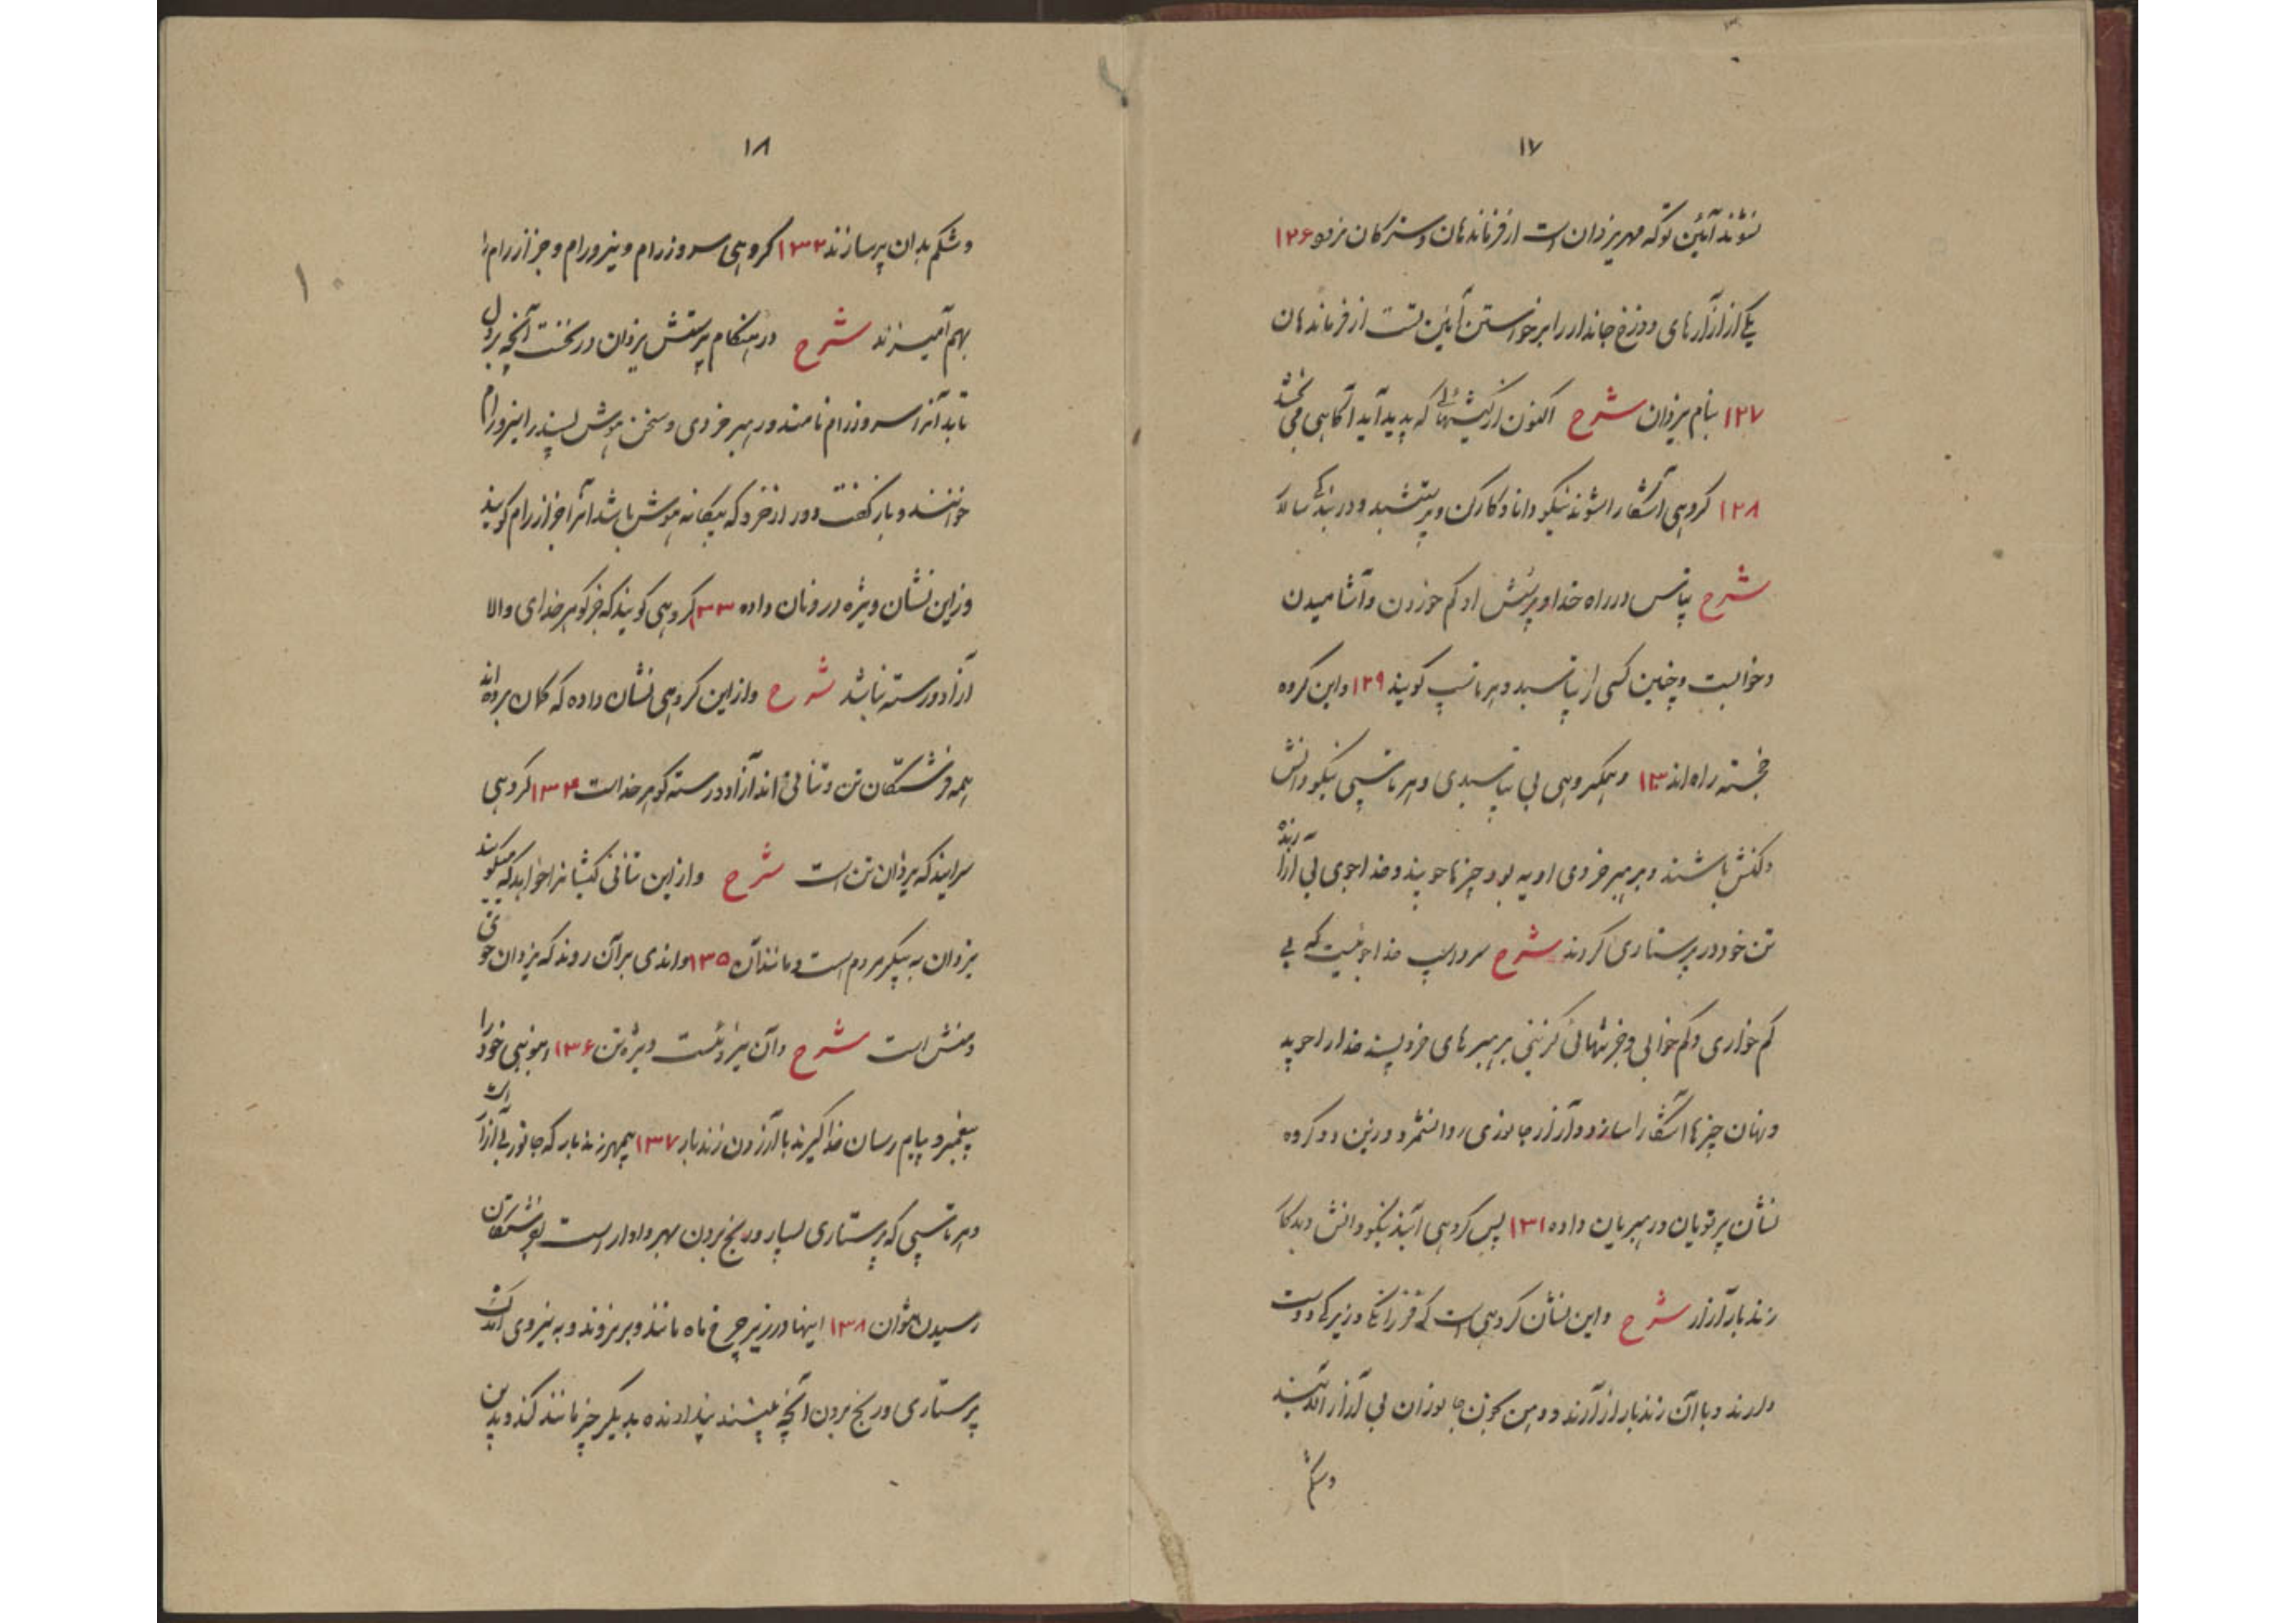 ۱۷
نشوند آئین تو که مهر یزدان است از فرزندان و سترکان نرود ۱۲۶
یکی از آزارهای دوزخ جاندار را برخواستن آئین تست از فرزندان
۱۲۷ بنام یزدان شرح اکنون از کیشهائی که پدید آید آگاهی می بخشد
۱۲۸ گروهی آشکارا شوند نیکو دانا و کارکن و پرستشبد و در بندگی سالار
شرح تپاس در راه خدا و پرستش او کم خوردن و آشامیدن
و خوابست و چنین کسی را تپاسبد و هرتاسپ گویند ۱۲۹ و این گروه
خجسته راه اند ۱۳۰ و همگروهی بی تپاسبدی و هرتاسپی نیکو دانش
و کنش باشند و برهبر خردی او به بود چیزها جویند و خداجوی بی آزارند
تن خود در پرستاری کردند شرح سرداسپ خداجوئیست که بی
کم خواری و کم خوابی و جز تنهائی گزینی برهبرهای خرد پسند خدا را جوید
و نهان چیزها آشکارا سازد و آزار جانوری روا نشمرد و زین دو گروه
نشان پرتویان و رهبریان داده ۱۳۱ پس گروهی آیند نیکو دانش و بدکار
زندبار آزار شرح و این نشان گروهی است که فرزانگی و زیرکی دوست
دارند و با آن زندبار آزارند و دهن بخون جانوران بی آزار آلایند
وشکم
۱۸
و شکم بدان پر سازند ۱۳۲ گروهی سروزرام و نیرورام و جزازرام را
بهم آمیزند شرح در هنگام پرستش یزدان در نخست آنچه بر دل
تابد آنرا سروزرام نامند و رهبر خردی و سخن هوش پسند را نیرورام
خوانند و باز گفت دور از خرد که بیگانه هوش باشد آنرا جزازرام گویند
وزین نشان ویژه درونان داده ۱۳۳ گروهی گویند که جز گوهر خدای والا
آزاد و رسته نباشد شرح و از این گروهی نشان داده که گمان برده اند
همه فرشتگان تن و تنانی اند آزاد و رسته گوهر خداست ۱۳۴ گروهی
سرایند که یزدان تن است شرح و از این تنانی کیشان را خواهد که میگویند
یزدان به پیکر مردم است و مانند آن ۱۳۵ و اندی بر آن روند که یزدان خوئی
و منش است شرح و آن نیروئست ویژه تن ۱۳۶ انبوهی خود را
پیغمبر و پیام رسان خدا گیرند با آزردن زندبار ۱۳۷ بیمهر زندبار که جانور بی آزار است
و هرتاسپی که پرستاری بسیار و رنج بردن بهر دادار است بفرشتگان
رسیدن نتوان ۱۳۸ اینها در زیر چرخ ماه مانند و بر نروند و به نیروی اندک
پرستاری و رنج بردن آنچه بینند پندارنده بدیگر چیز مانند کند و بدین